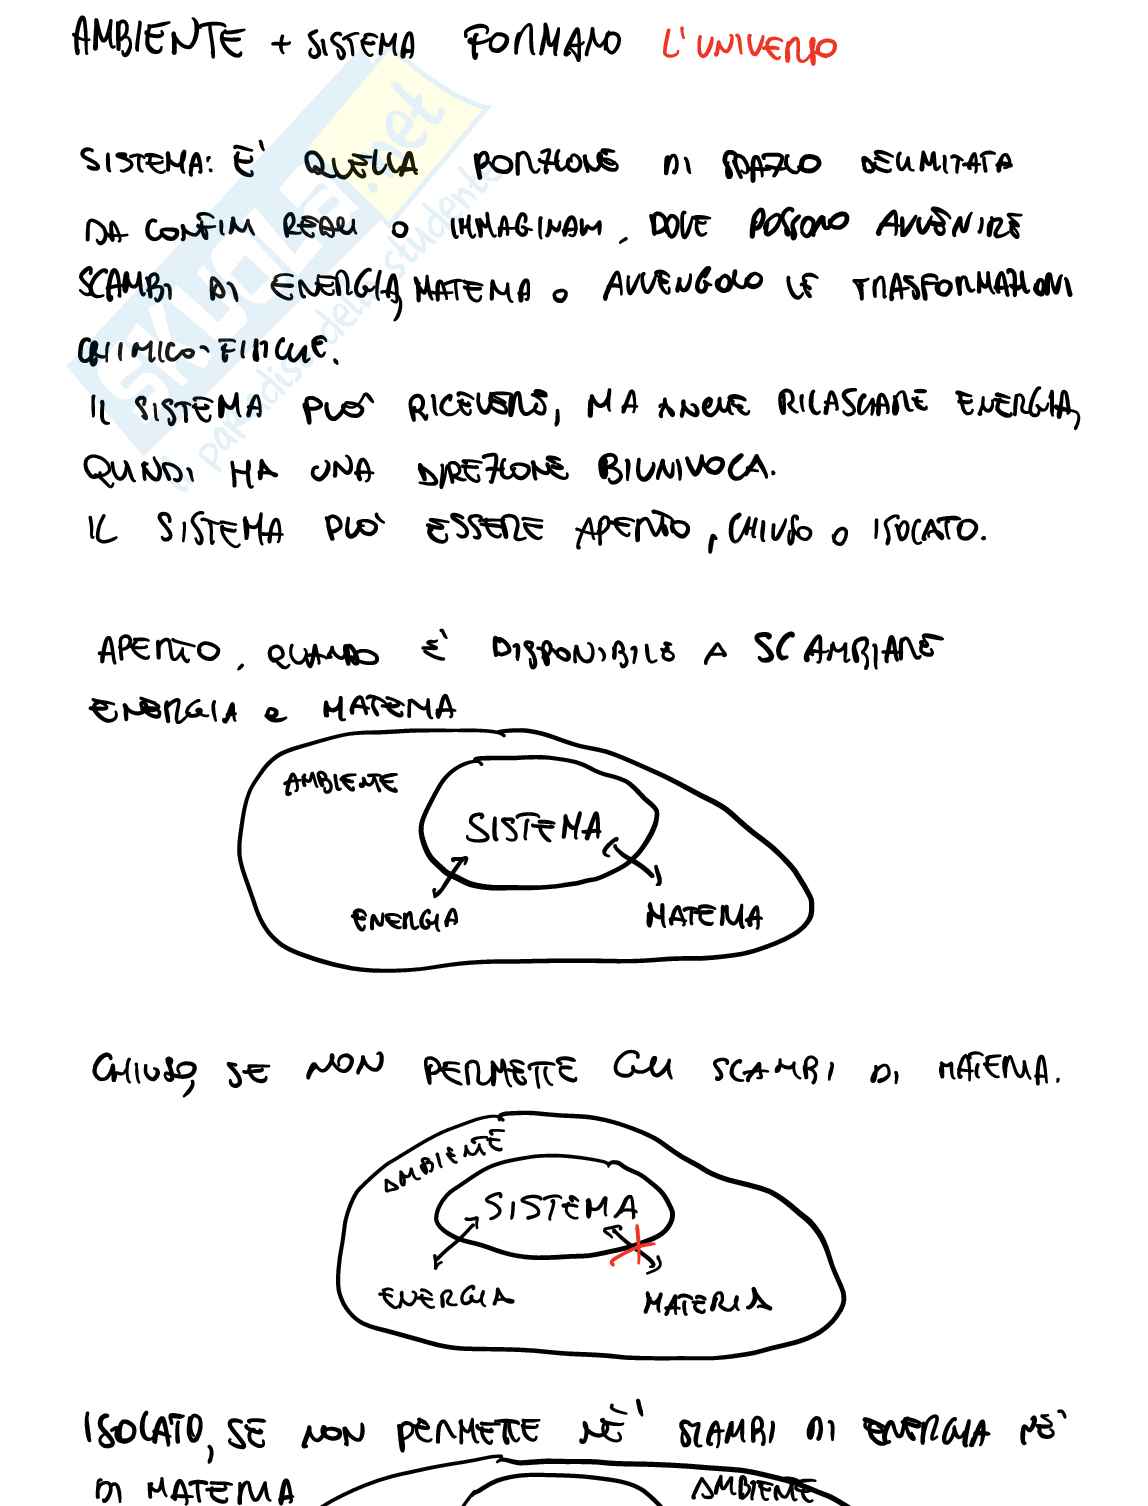 AMBIENTE + SISTEMA FORMANO L'UNIVERSO
SISTEMA: E' QUELLA PORZIONE DI SPAZIO DELIMITATA
DA CONFINI REALI O IMMAGINARI, DOVE POSSONO AVVENIRE
SCAMBI DI ENERGIA, MATERIA O AVVENGOLO LE TRASFORMAZIONI
CHIMICO-FISICHE.
IL SISTEMA PUO' RICEVERE, MA ANCHE RILASCIARE ENERGIA,
QUINDI HA UNA DIREZIONE BIUNIVOCA.
IL SISTEMA PUO' ESSERE APERTO, CHIUSO O ISOLATO.
APERTO, QUANDO E' DISPONIBILE A SCAMBIARE
ENERGIA e MATERIA
AMBIENTE
SISTEMA
ENERGIA MATERIA
CHIUSO, SE NON PERMETTE GLI SCAMBI DI MATERIA.
AMBIENTE
SISTEMA
ENERGIA MATERIA
ISOLATO, SE NON PERMETTE NE' SCAMBI DI ENERGIA NE'
DI MATERIA
AMBIENTE
SKUOLA.net
paradiso dello studente